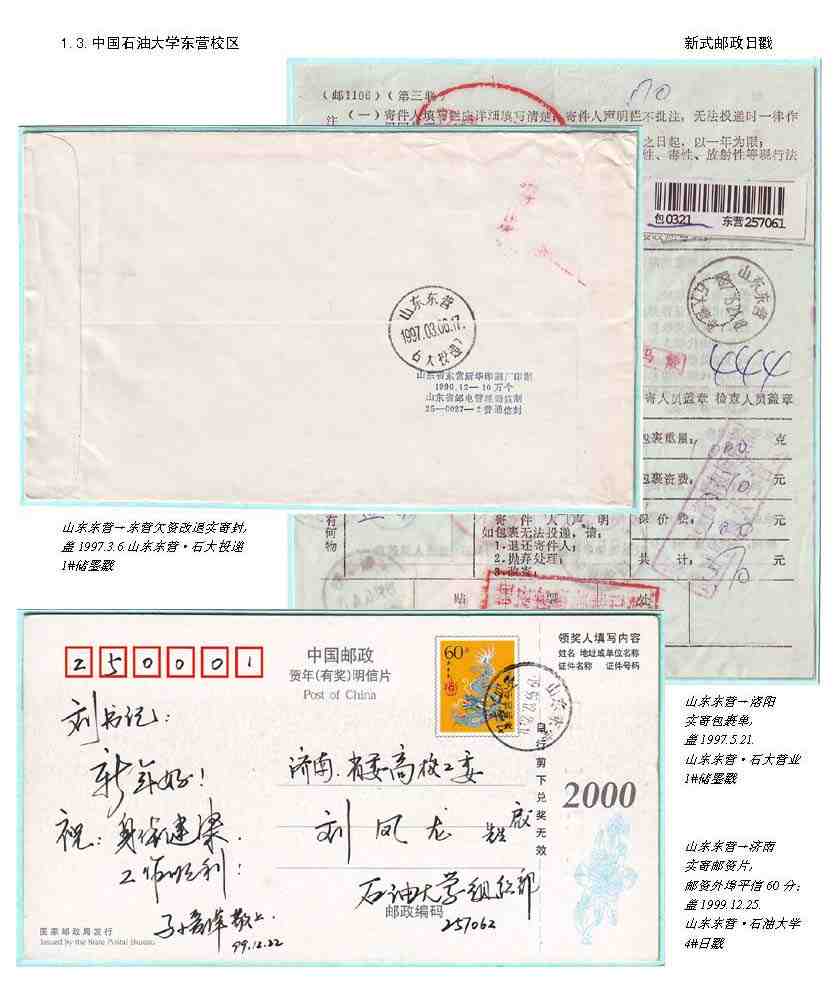 1.3.中国石油大学东营校区
新式邮政日戳
(邮1106)(第三联)
注(一)寄件人填写
详细填写清楚
寄件人声明栏不批注,无法投递时一律作
之日起,以一年为限;
性、毒性、放射性等现行法
包0321 东营257061
山东东营
1997.03.06.17.
山东东营
山东省东营新华印刷厂印制
1996.12-10万个
山东省邮电管理局监制
25-0027-2普通信封
444
寄人员盖章 检查人员盖章
包裹重量: 克
包裹资费: 元
保价费: 元
共计: 元
有何物
寄件人声明
如包裹无法投递,请:
1.退还寄件人;
2.抛弃处理;
贴
处
山东东营→东营欠资改退实寄封,
盖1997.3.6山东东营·石大投递
1#储墨戳
250001
中国邮政
贺年(有奖)明信片
Post of China
60分
领奖人填写内容
姓名 地址或单位名称
证件名称 证件号码
山东东营
刘书记:
新年好!
祝:身体健康.
工作顺利!
敬上.
99.12.22
济南.省委高校工委
刘凤龙
启
石油大学组织部
邮政编码
257062
自行剪下兑奖无效
2000
国家邮政局发行
Issued by the State Postal Bureau
山东东营→洛阳
实寄包裹单,
盖1997.5.21.
山东东营·石大营业
1#储墨戳
山东东营→济南
实寄邮资片,
邮资外埠平信60分;
盖1999.12.25.
山东东营·石油大学
4#日戳